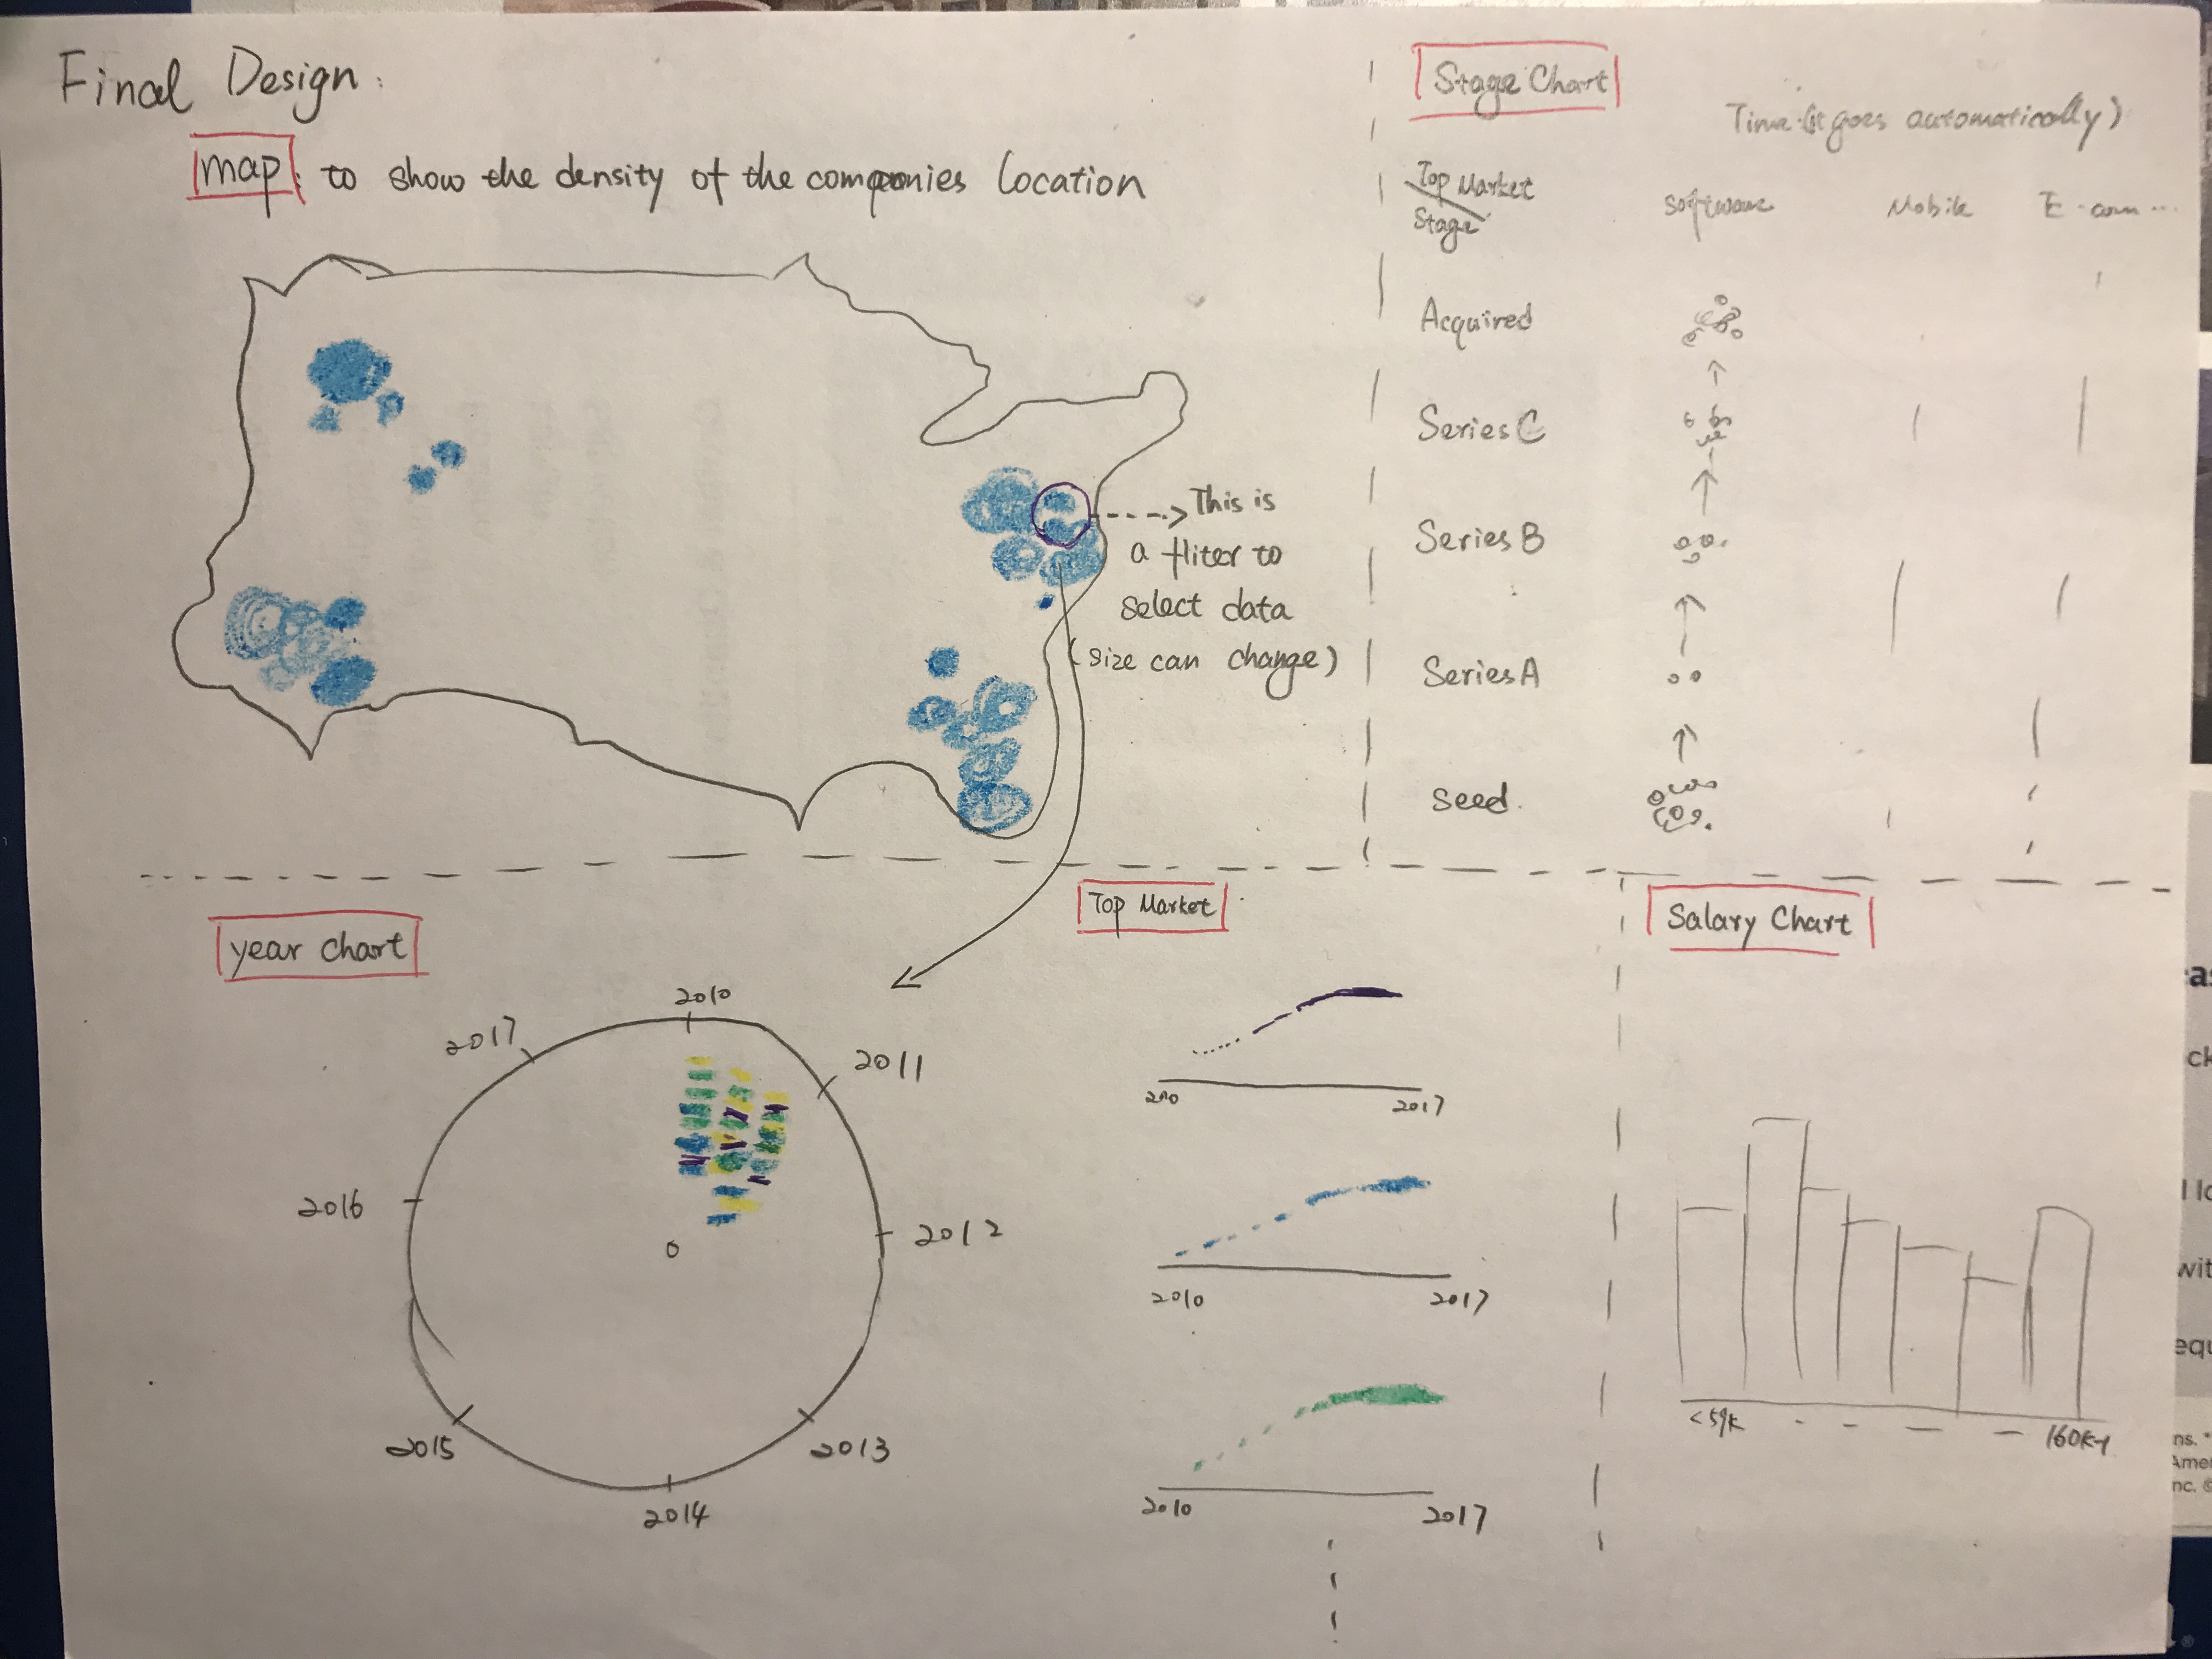 Final Design:
map: to show the density of the companies location
---> This is
a fliter to
select data
(size can change)
Stage Chart
Time (it goes automatically)
Top Market
Stage
software Mobile E-com ...
Acquired
Series C
Series B
Series A
seed
year chart
2010
2011
2012
2013
2014
2015
2016
2017
Top Market
2010 2017
2010 2017
2010 2017
Salary Chart
<59K - - - - 160K+
as
ck
l lo
wit
equ
ns.
Ame
nc. ©
®